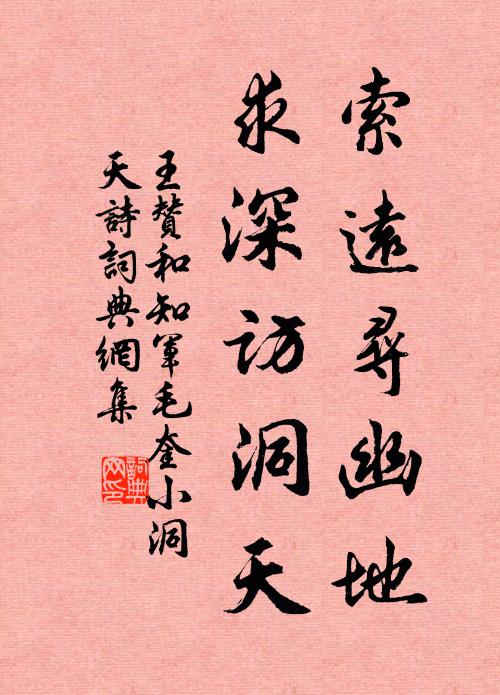 索遠尋幽地
求深访洞天
王贊和知軍毛奎小洞
天詩詞典網集
詞典网印